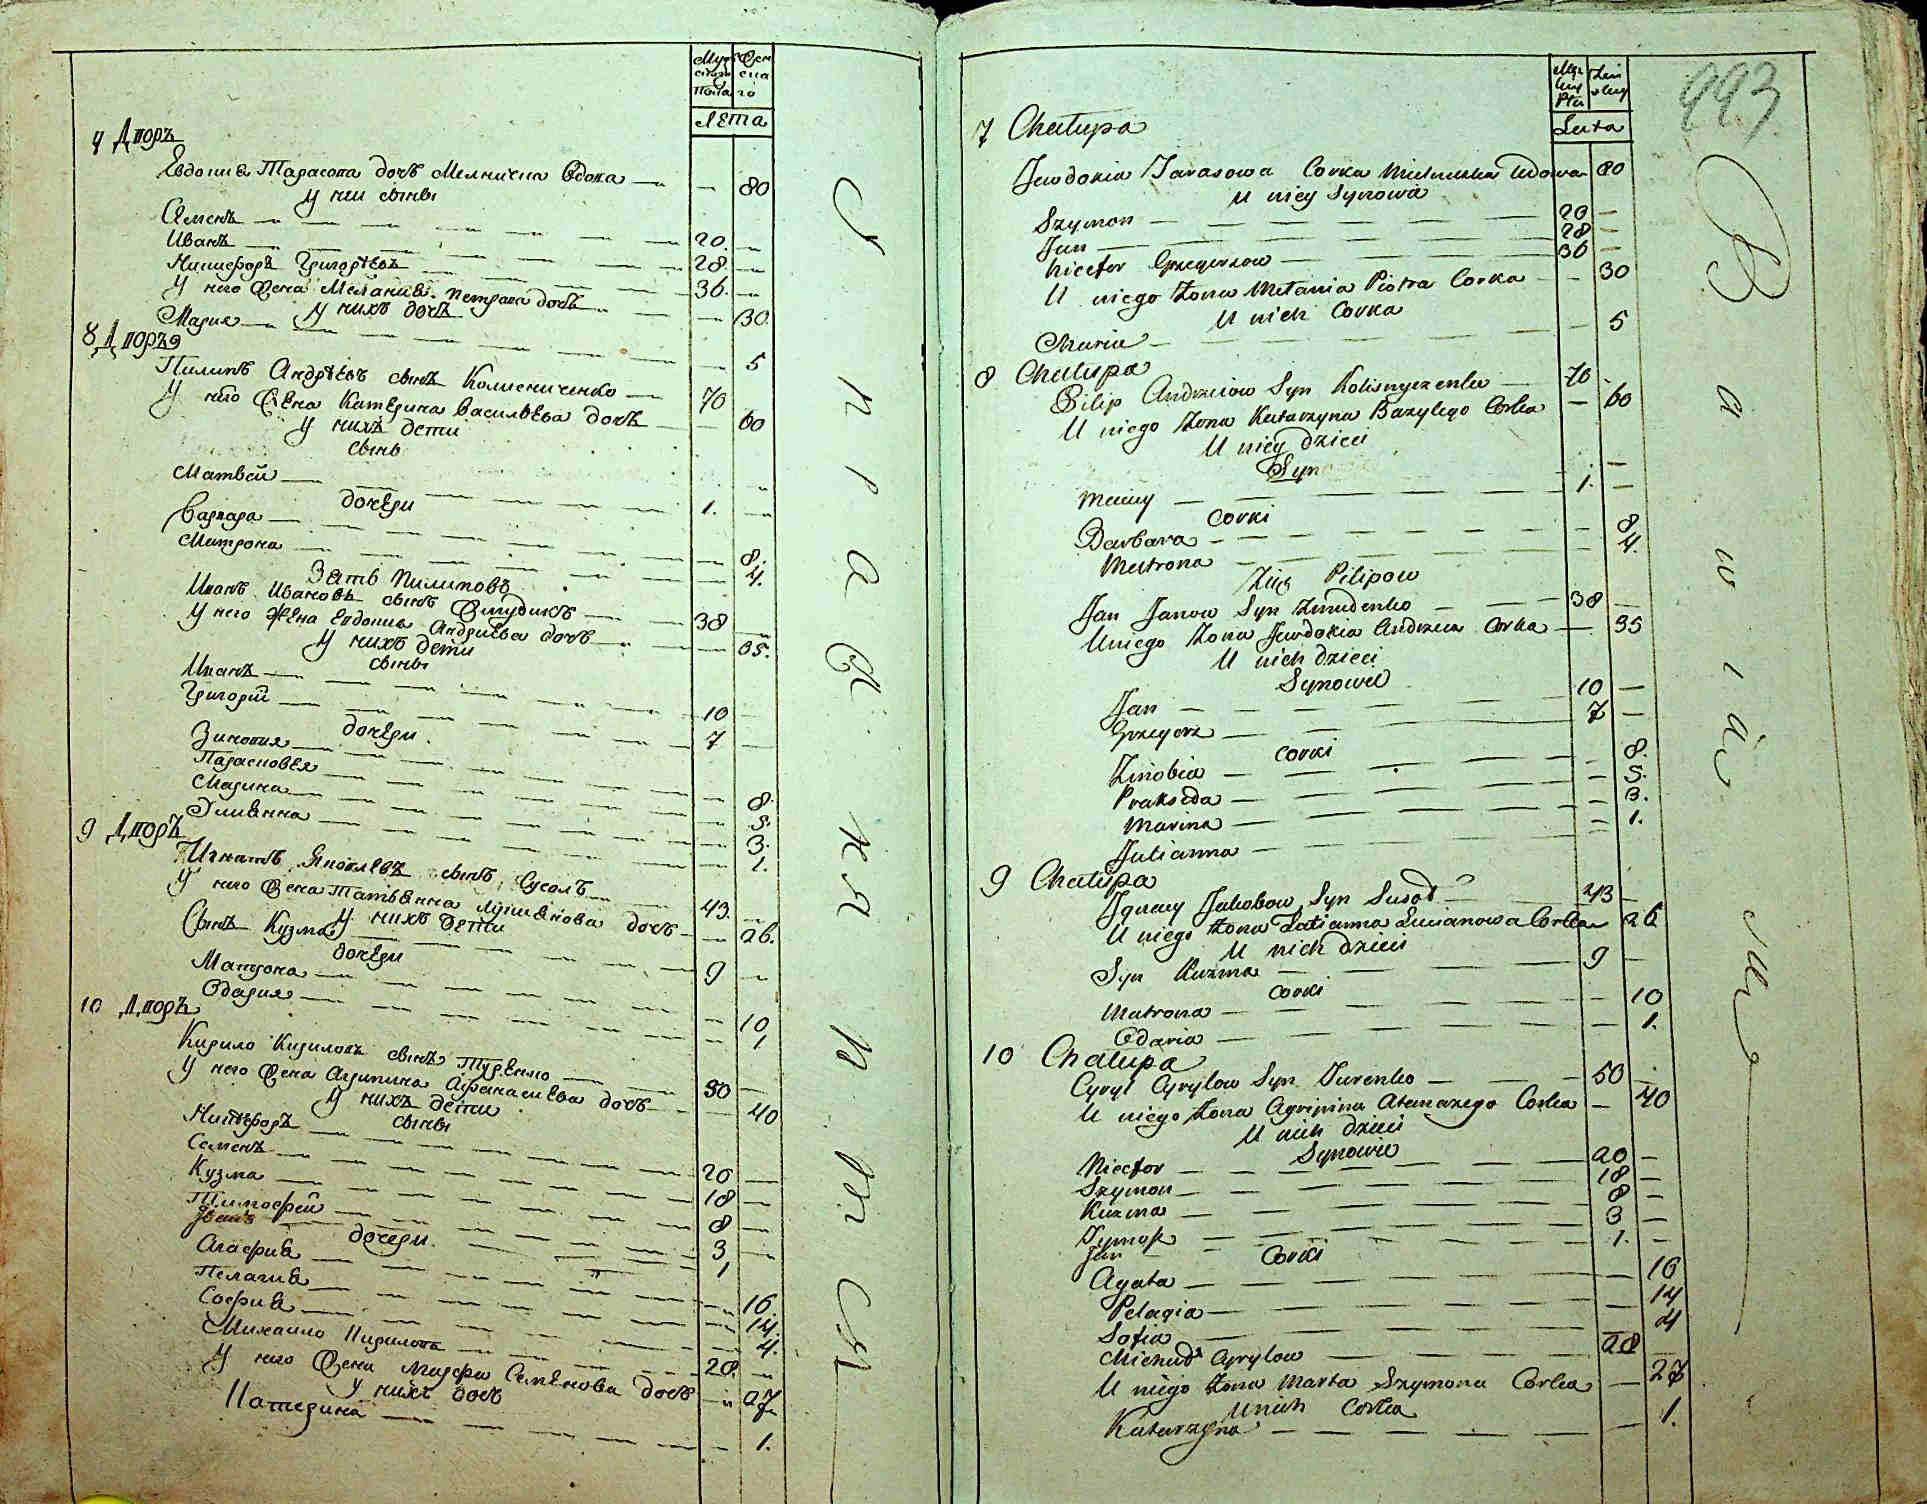 Мужскаго Пола
Женскаго
Лета
7 Дворъ
Евдокия Тарасова дочь Мелничиха Вдова — — 80
У неи сыны
Семенъ — 20. —
Иванъ — 28. —
Никифоръ Григорьевъ — 36. —
У него Жена Мелания Петрова дочь — — 30.
У нихъ дочь
Мария — — 5
8 Дворъ
Пилипъ Андрѣевъ сынъ Колисниченко — 70
У него Жена Катерина Васильева дочь — — 60
У нихъ дети
Сынъ
Матвей — 1. —
дочери
Варвара — — 8.
Матрона — — 4.
Зять Пилиповъ
Иванъ Ивановъ сынъ Жмудикъ — 38 —
У него Жена Евдокия Андриева дочь — — 35.
У нихъ дети
сыны
Иванъ — 10 —
Григорий — 7 —
дочери.
Зиновия — — 8.
Парасковея — — 5.
Марина — — 3.
Улиянна — — 1.
9 Дворъ
Игнатъ Яковлевъ сынъ Сусолъ — 43. —
У него Жена Татьянна Лукиянова дочь — — 26.
У нихъ дети
Сынъ Кузма — 9 —
дочери
Матрона — — 10
Одария — — 1
10 Дворъ
Кирило Кириловъ сынъ Туренко — 50 —
У него Жена Агрипина Афанасиева дочь — — 40
У нихъ дети
сыны
Никифоръ — 20 —
Семенъ — 18 —
Кузма — 8 —
Тимофей — 3 —
Иванъ — 1
дочери.
Агафия — — 16.
Пелагия — — 14.
София — — 4.
Михаило Кириловъ — 28. —
У него Жена Марфа Семенова дочь — — 27
У нихъ дочь
Катерина — — 1.
993
Męzkiey Płci
Żeńskiey
Lata
7 Chałupa
Jewdokia Tarasowa Corka Mielniczka Wdowa — 80
U niey Synowie
Szymon — 20 —
Jan — 28 —
Nicefor Grzegorzow — 36 —
U niego Żona Melania Piotra Corka — — 30
U nich Corka
Maria — — 5
8 Chałupa
Filip Andrzeiow Syn Kolisnyczenko — 70 -
U niego Żona Katarzyna Bazylego Corka — — 60
U niey dzieci
Syn
Maciey — 1. —
Corki
Barbara — — 8.
Matrona — — 4.
Zięć Pilipow
Jan Janow Syn Żmudenko — 38 —
U niego Żona Jewdokia Andrzeia Corka — — 35
U nich dzieci
Synowie
Jan — 10 —
Grzegorz — 7 —
Corki
Zinobia — — 8.
Prakseda — — 5.
Marina — — 3.
Julianna — — 1.
9 Chałupa
Ignacy Jakobow Syn Susoł — 43 —
U niego Żona Tatianna Lucianowa Corka — 26
U nich dzieci
Syn Kuzma — 9 —
Corki
Matrona — — 10
Odaria — — 1.
10 Chałupa
Cyryl Cyrylow Syn Turenko — 50 —
U niego Żona Agripina Atanazego Corka — — 40
U nich dzieci
Synowie
Nicefor — 20 —
Szymon — 18 —
Kuzma — 8 —
Tymosz — 3 —
Jan — 1. —
Corki
Agata — — 16
Pelagia — — 14
Sofia — — 4
Michał Cyrylow — 28 —
U niego Żona Marta Szymona Corka — — 27
U nich Corka
Katarzyna — — 1.